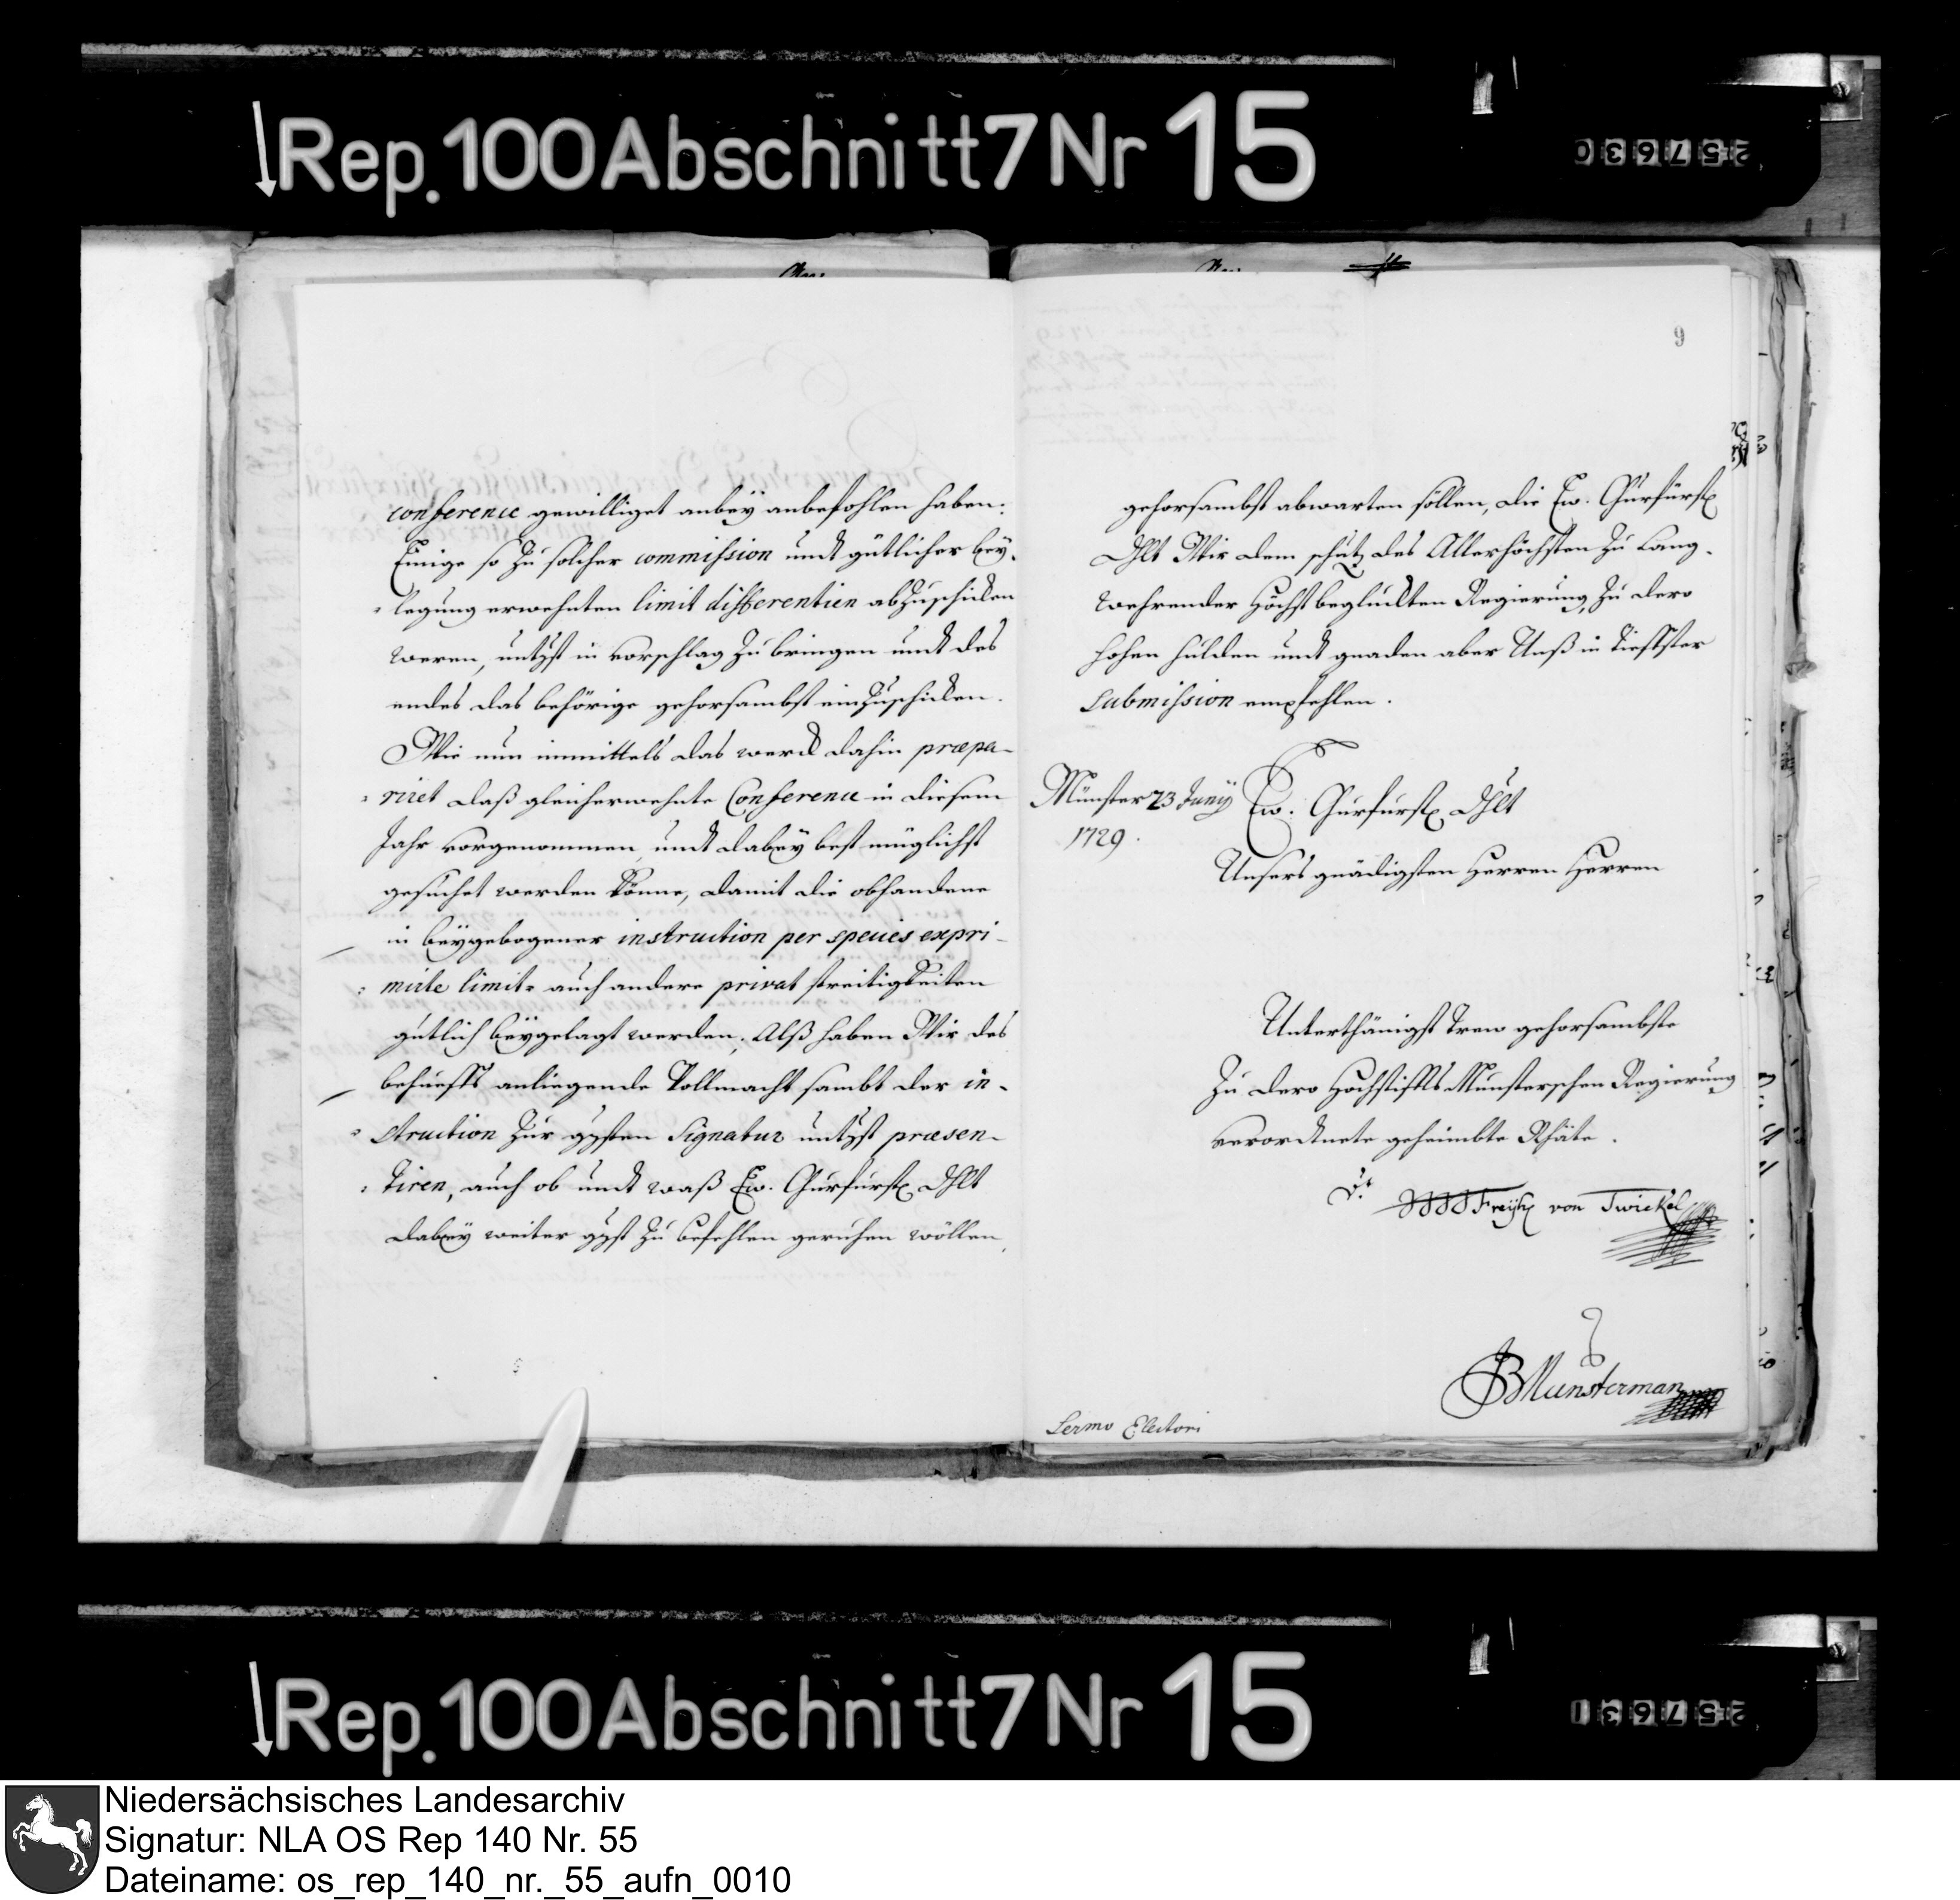 Rep. 100 Abschnitt 7 Nr 15
257630
conference gewilliget anbeÿ anbefohlen haben.
Einige so zu solcher commission undt gütlicher beÿ-
legung erwehnten limit differentien abzuschicken
weren, untgst in vorschlag zu bringen undt des
endes das behörige gehorsambst einzuschicken.
Wie nun inmittels das werck dahin præpa-
riret daß gleicherwehnte Conference in diesem
Jahr vorgenommen, undt dabeÿ best müglichst
gesuchet werden könne, damit die obhandene
in beÿgebogener instruction per species expri-
mirte limit- auch andere privat streitigkeiten
gütlich beÿgelagt werden; Alß haben Wir des
behueffs anliegende Vollmacht sambt der in-
struction zur ggsten Signatur untgst præsen-
tiren, auch ob undt waß Ew. Churfürstl. Dhlt
dabeÿ weiter ggst zu befehlen geruhen wöllen,
9
gehorsambst abwarten sollen, die Ew. Churfürstl.
Dhlt Wir dem schutz des Allerhöchsten zu lang-
wehrender höchst beglückten Regierung, zu dero
hohen hulden undt gnaden aber Unß in tieffster
submission empfehlen.
Münster 23 Junÿ
1729.
Ew. Churfürstl. Dhlt
Unsers gnädigsten Herren Herren
Unterthänigst trew gehorsambste
zu dero Hochstiffts Münsterschen Regierung
verordtnete geheimbte Rhäte.
von Twickel
JB Munsterman
Sermo Electori
Rep. 100 Abschnitt 7 Nr 15
257631
Niedersächsisches Landesarchiv
Signatur: NLA OS Rep 140 Nr. 55
Dateiname: os_rep_140_nr._55_aufn_0010